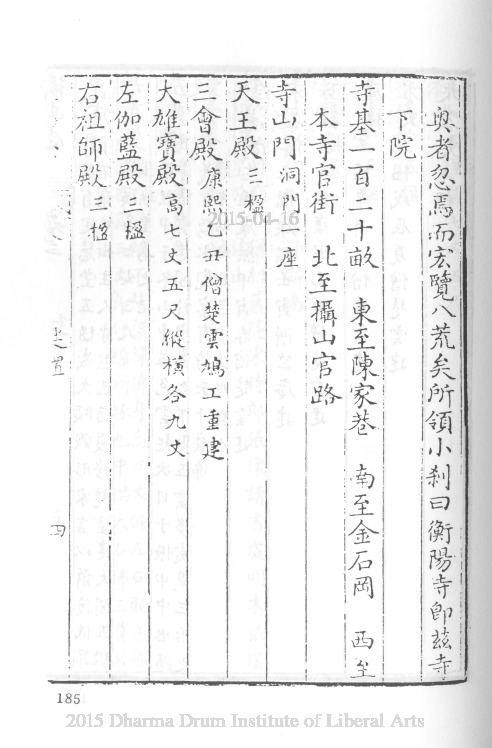 奧者忽焉而宏覽八荒矣所領小刹曰衡陽寺卽茲寺
下院
寺基一百二十畝　東至陳家巷　南至金石岡　西至
本寺官街　北至攝山官路
寺山門洞門一座
天王殿三楹
三會殿康熙乙丑僧楚雲鳩工重建
大雄寶殿高七丈五尺縱橫各九丈
左伽藍殿三楹
右祖師殿三楹
四
185
2015-04-16
2015 Dharma Drum Institute of Liberal Arts